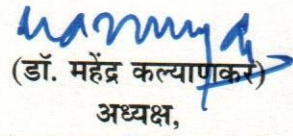 (डॉ. महेंद्र कल्याणकर)
अध्यक्ष,